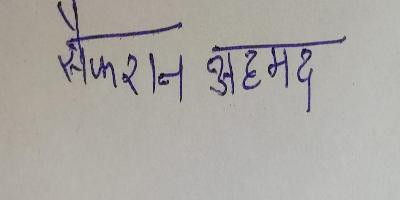 सैफरान अहमद